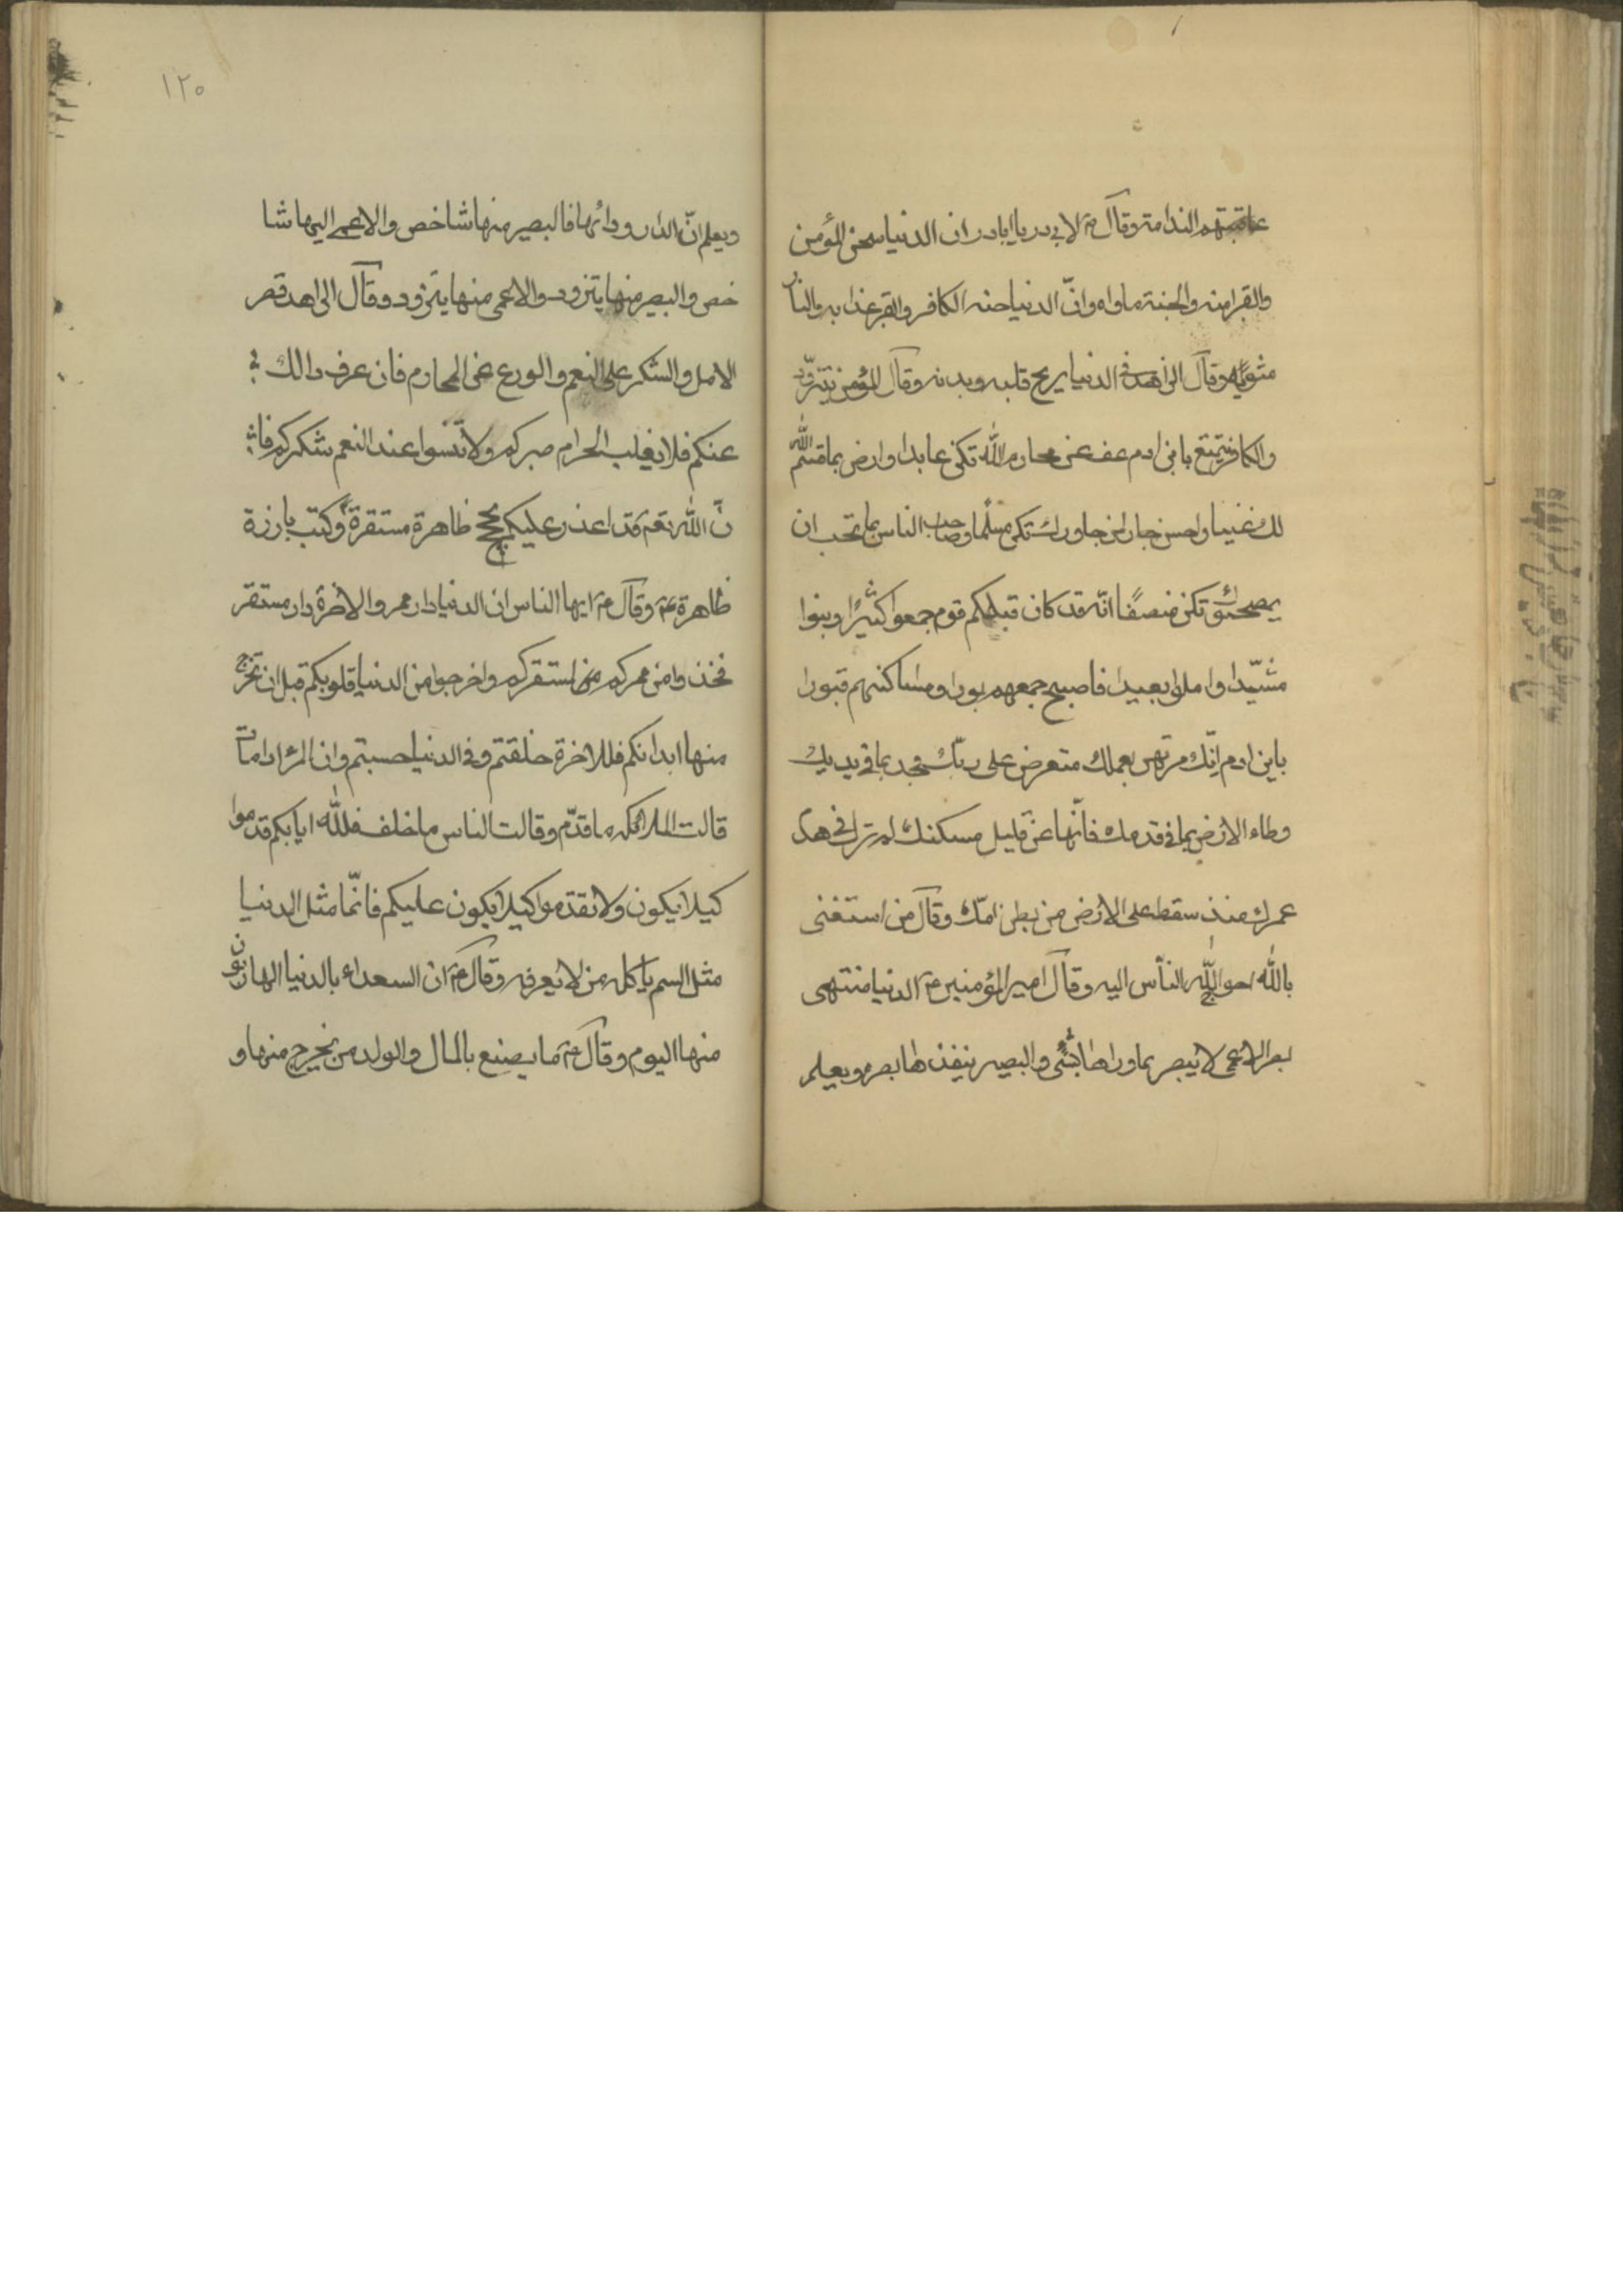 عاقبتهم الندامة وقال ع لابي در يا ابادر ان الدنيا سجن المؤمن
والقبر امنه والجنة ماواه وانّ الدنيا جنه الكافر والقبر عذابه والنار
مثويه وقال الزاهد فى الدنيا يريح قلبه وبدنه وقال المؤمن يتزوّد
والكافر يتمتع يا بن ادم عف عن محارم الله تكن عابدا وارض بما قسم الله
لك غنيا واحسن جار لمن جاورك تكن مسلما وصاحب الناس بما تحب ان
يصحبك تكن منصفًا انّه قد كان قبلكم قوم جمعوا كثيرًا وبنوا
مشيّدا واملوا بعيدا فاصبح جمعهم بورا ومساكنهم قبورا
يابن ادم انّك مرتهن بعملك متعرض على ربّك فجد بما فى يديك
وطاء الارض بما فى قدمك فانّها عن قليل مسكنك لم تزل فى هدم
عمرك منذ سقط على الارض من بطن امّك وقال من استغنى
بالله احوج الله الناس اليه وقال امير المؤمنين ع الدنيا منتهى
بصر الاعمى لا يبصر بما وراها شئى والبصير ينفذها بصره ويعلم
١٢٠
ويعلم انّ الدار ورائها فالبصير منها شاخص والاعمى اليها شا
خص والبصير منها يتزود والاعمى منها يتزود وقال الزاهد قصر
الامل والشكر على النعم والورع عن المحارم فان عرف دالك
عنكم فلا يغلب الحرام صبركم ولا تنسوا عند النعم شكركم فا
نّ الله تعم قد اعذر عليكم بحجج ظاهرة مستقرة وكتب بارزة
ظاهرة وقال ع ايها الناس ان الدنيا دار ممر والاخرة دار مستقر
فخذوا من ممركم لمستقركم واخرجوا من الدنيا قلوبكم قبل ان تخرج
منها ابدانكم فللاخرة خلقتم وفى الدنيا حسبتم وان المرء اذا مات
قالت الملائكه ما قدّم وقالت الناس ما خلف فلله ايابكم قدموا
كيلا يكون ولا تقدموا كيلا يكون عليكم فانّما مثل الدنيا
مثل السم ياكله من لا يعرفه وقال ع ان السعداء بالدنيا الهاربون
منها اليوم وقال ع ما يصنع بالمال والولد من يخرج منها و